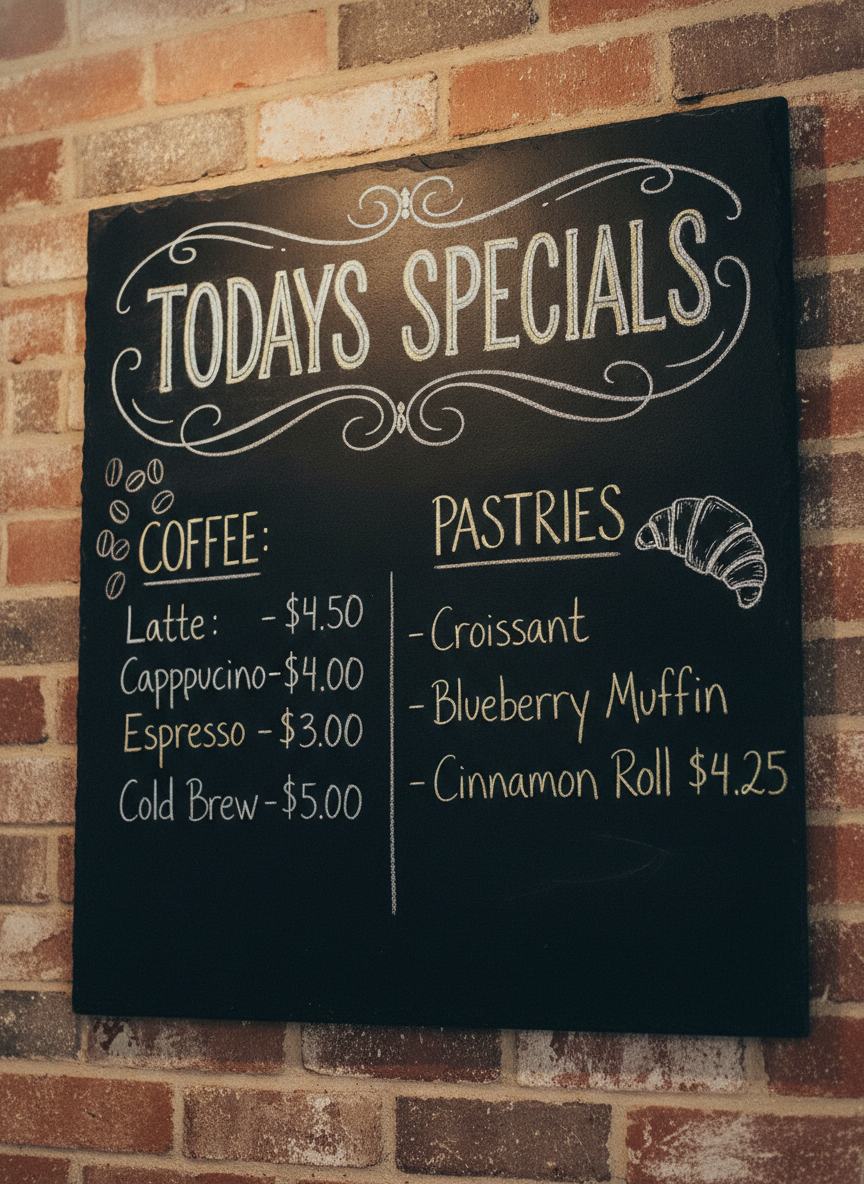 TODAYS SPECIALS
COFFEE:
Latte: -$4.50
Capppucino-$4.00
Espresso -$3.00
Cold Brew-$5.00
PASTRIES
-Croissant
-Blueberry Muffin
-Cinnamon Roll $4.25